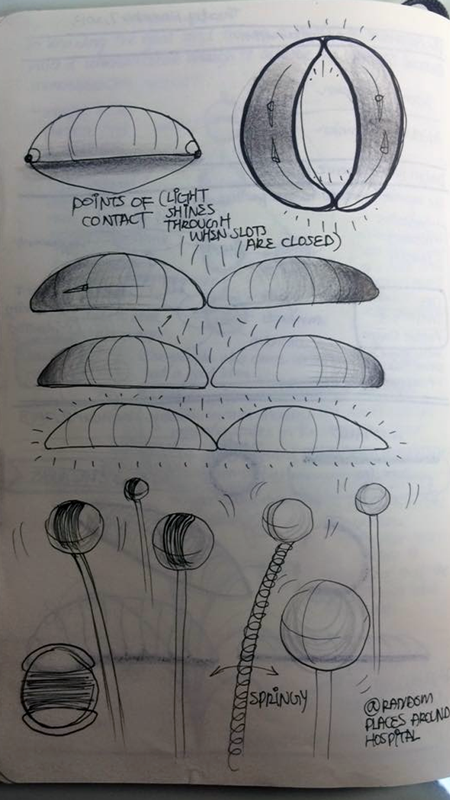 POINTS OF
CONTACT
(LIGHT
SHINES
THROUGH
WHEN SLOTS
ARE CLOSED)
SPRINGY
@RANDOM
PLACES AROUND
HOSPITAL